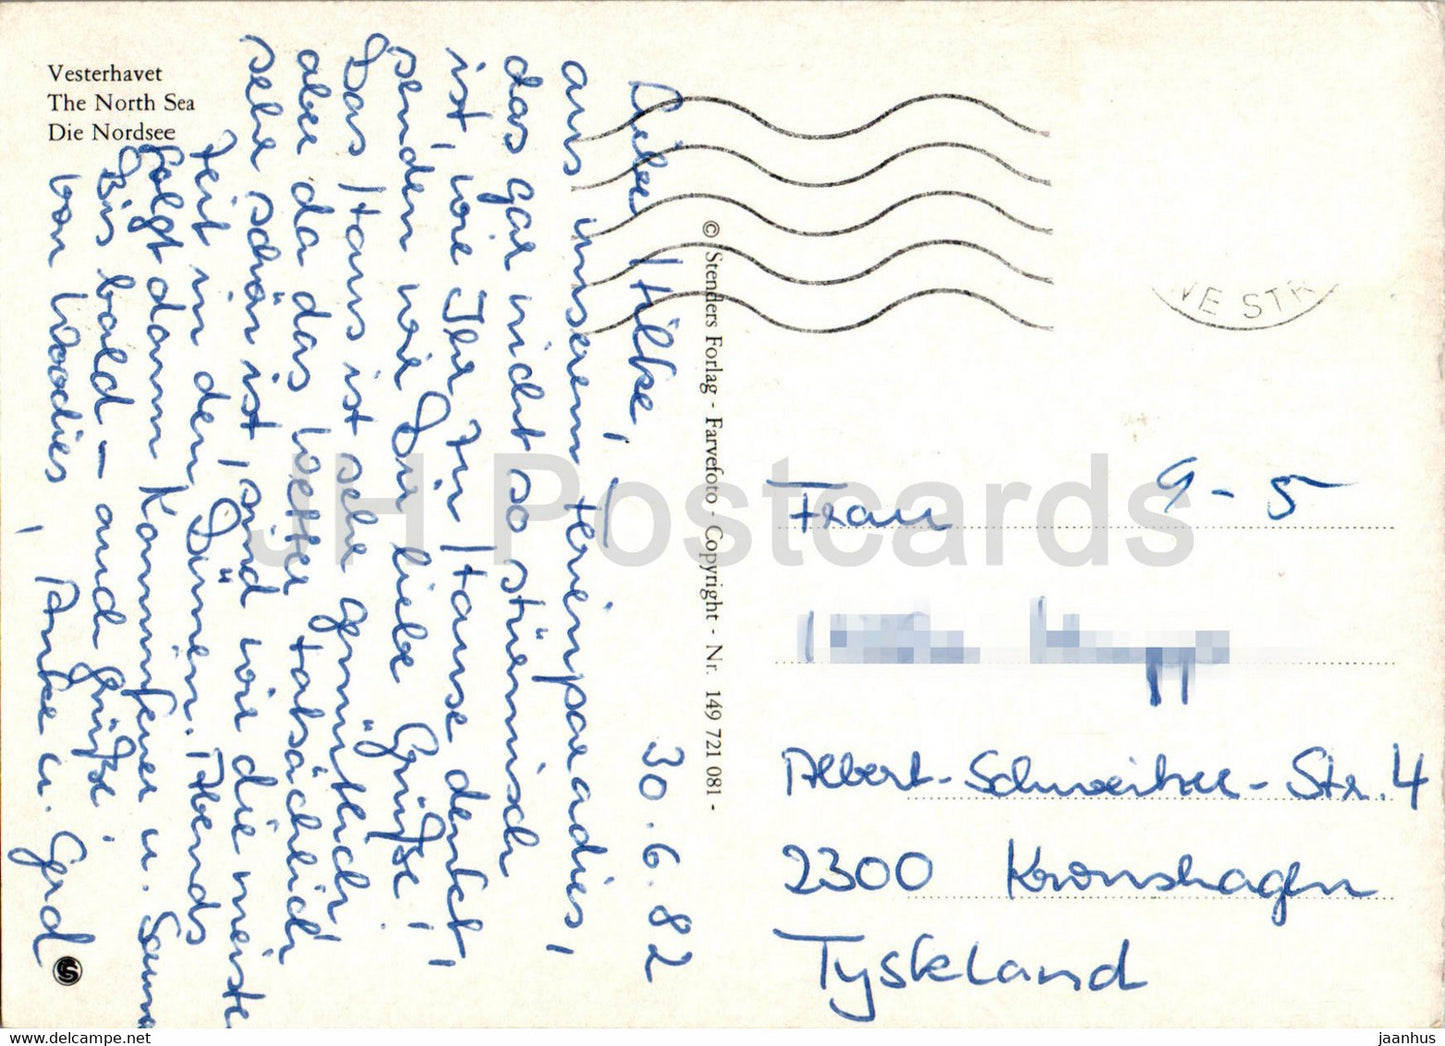 Vesterhavet
The North Sea
Die Nordsee
30.6.82
Liebe Hilke,
aus unserem Ferienparadies,
das gar nicht so stürmisch
ist, wie Ihr zu Hause denkt,
senden wir Dir liebe Grüße!
Das Haus ist sehr gemütlich,
aber da das Wetter tatsächlich
sehr schön ist, sind wir die meiste
Zeit in den Dünen. Abends
folgt dann Kaminfeuer u. Sauna
Bis bald – auch Grüße
von Woodies,
Anke u. Gerd
© Stenders Forlag - Farvefoto - Copyright - Nr. 149 721 081 -
VE STR
Frau 9-5
Albert-Schweitzer-Str. 4
2300 Kronshagen
Tyskland
JH Postcards
https://www.my-jh.com
jaanhus